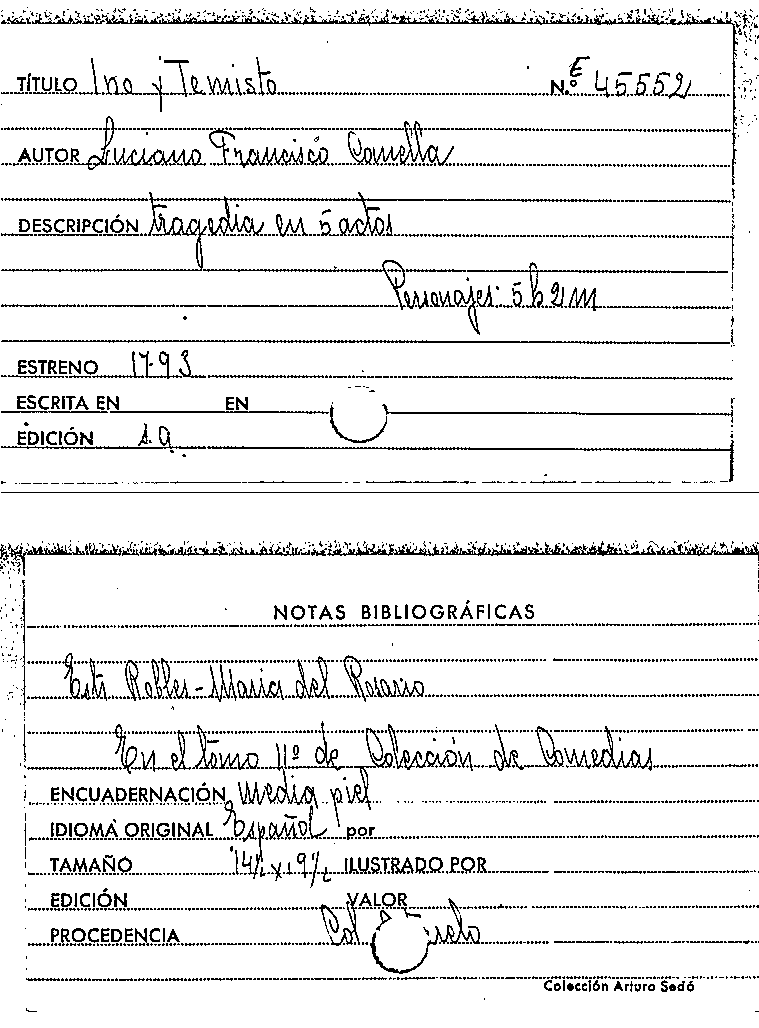 TÍTULO Ino y Temisto N.º E 45552
AUTOR Luciano Francisco Comella
DESCRIPCIÓN tragedia en 5 actos
Personajes: 5 h 2 m
ESTRENO 1793
ESCRITA EN EN
EDICIÓN s.a.
NOTAS BIBLIOGRÁFICAS
Estr Robles-Maria del Rosario
En el tomo 11º de Colección de Comedias
ENCUADERNACIÓN Media piel
IDIOMA ORIGINAL Español por
TAMAÑO 14½ x 19½ ILUSTRADO POR
EDICIÓN VALOR
PROCEDENCIA Col
Colección Arturo Sedó